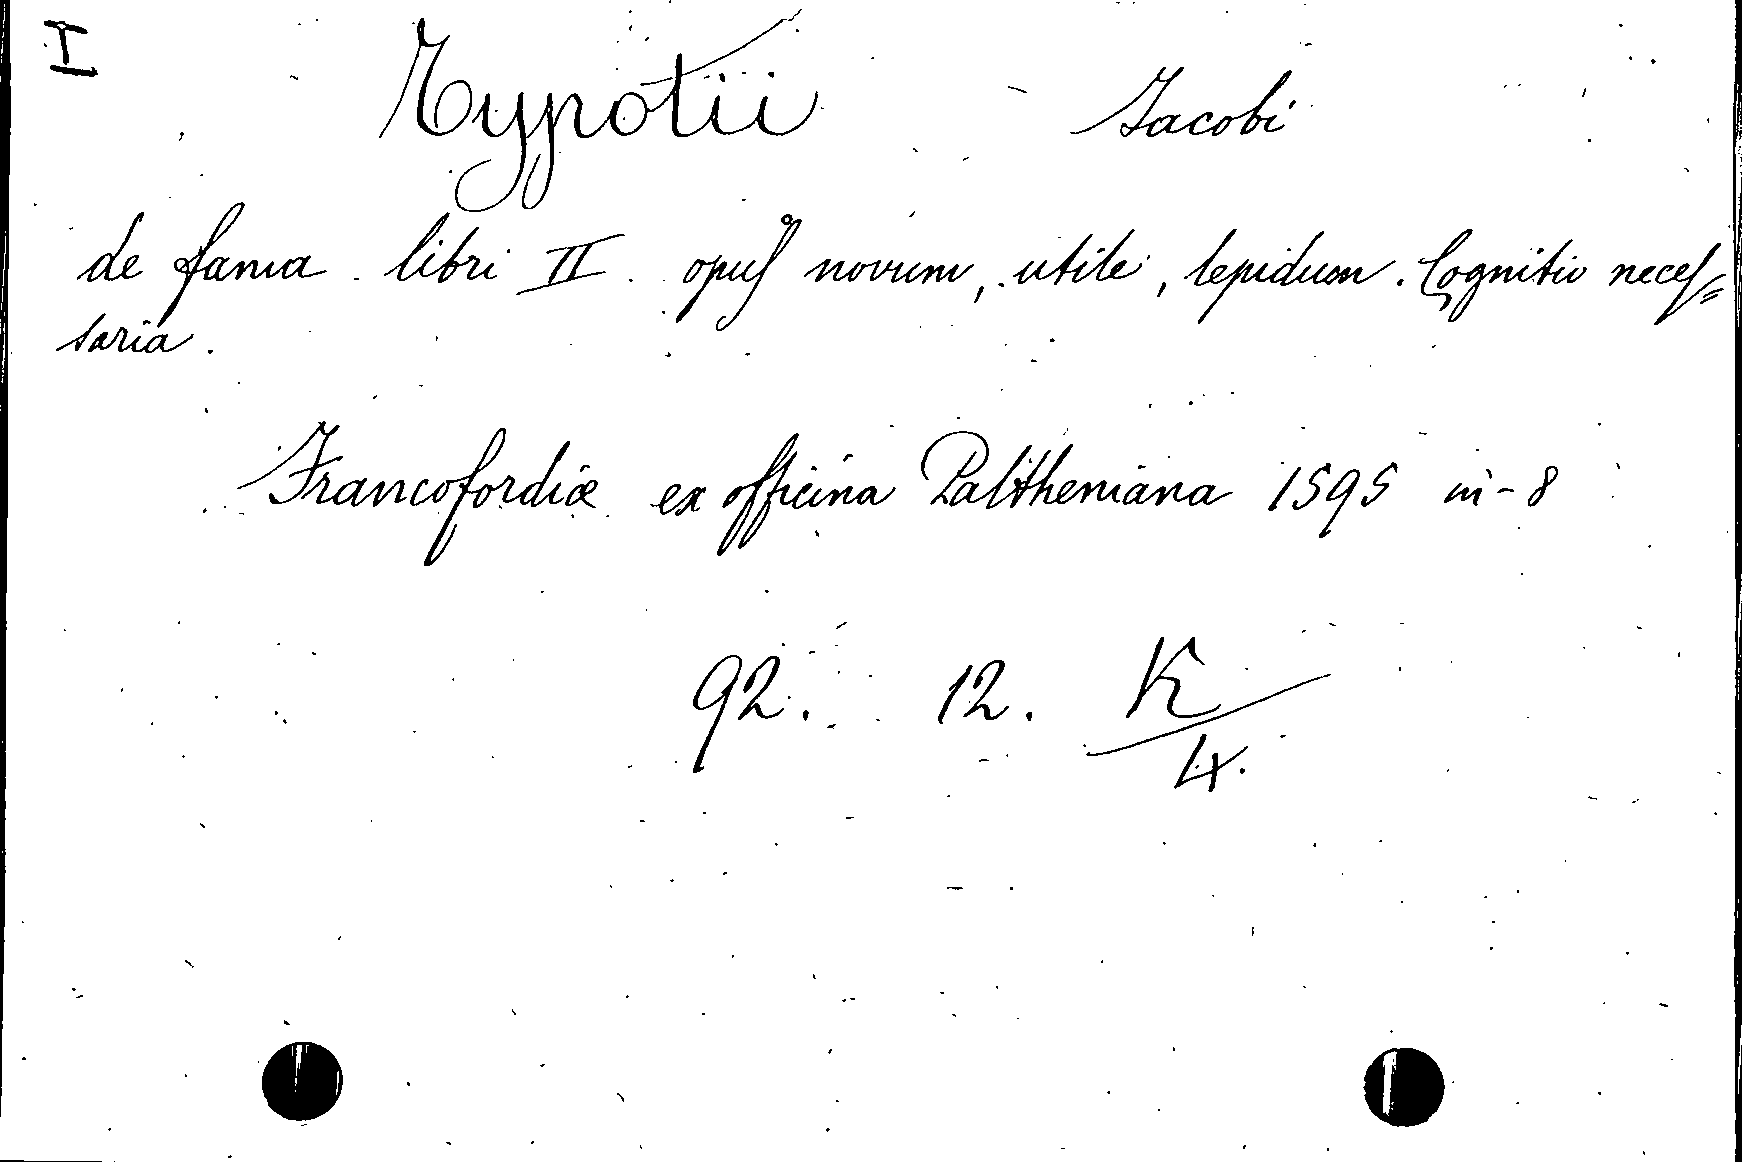 I
Typotii Jacobi
de fama libri II opus novum, utile, lepidum. Cognitio neces=
saria.
Francofordiæ ex officina Paltheniana 1595 in-8
92. 12. K/4.